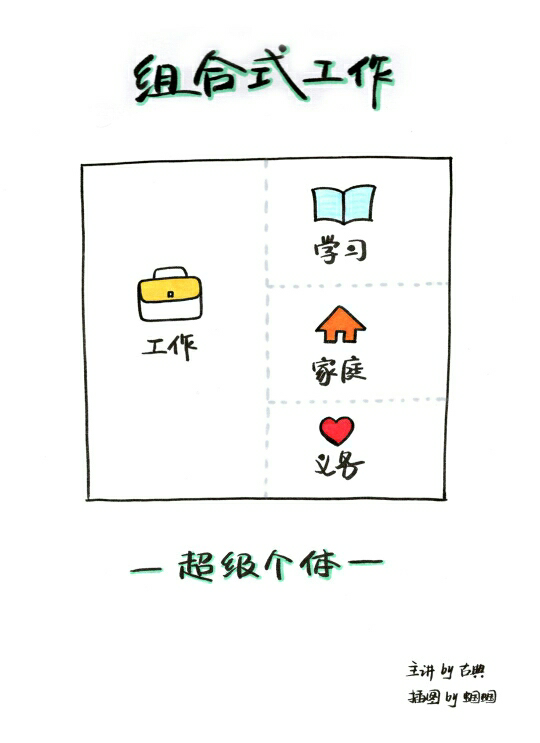 组合式工作
工作
学习
家庭
义务
—超级个体—
主讲 by 古典
插图 by 蝈蝈